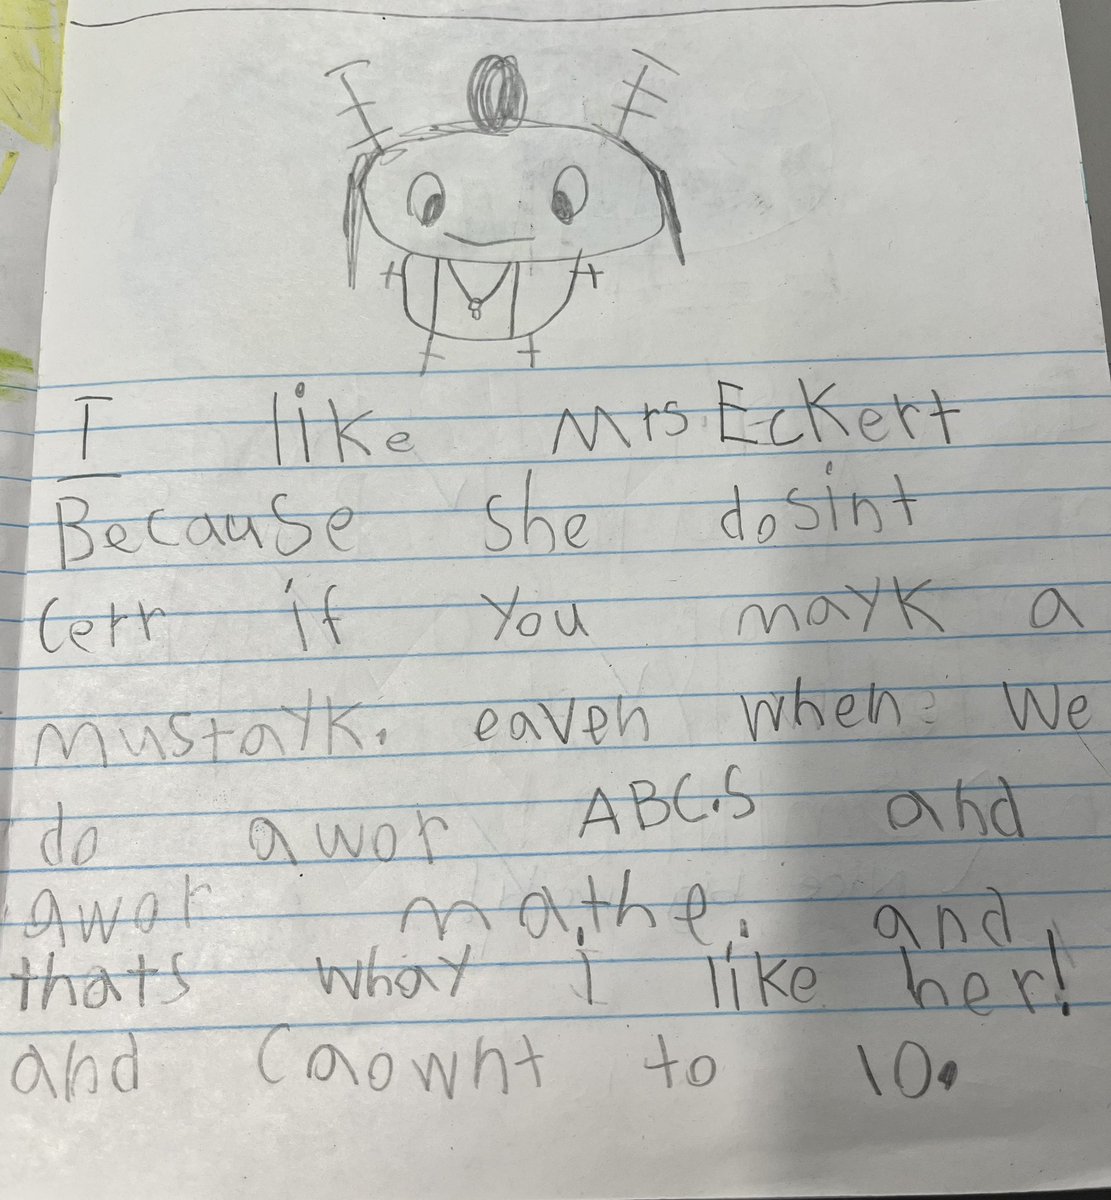 I like Mrs. Eckert
Because she dosint
cerr if you mayk a
mustayk. eaven when we
do awor ABC.S and
awor mathe. and
thats whay i like her!
and caownt to 10.